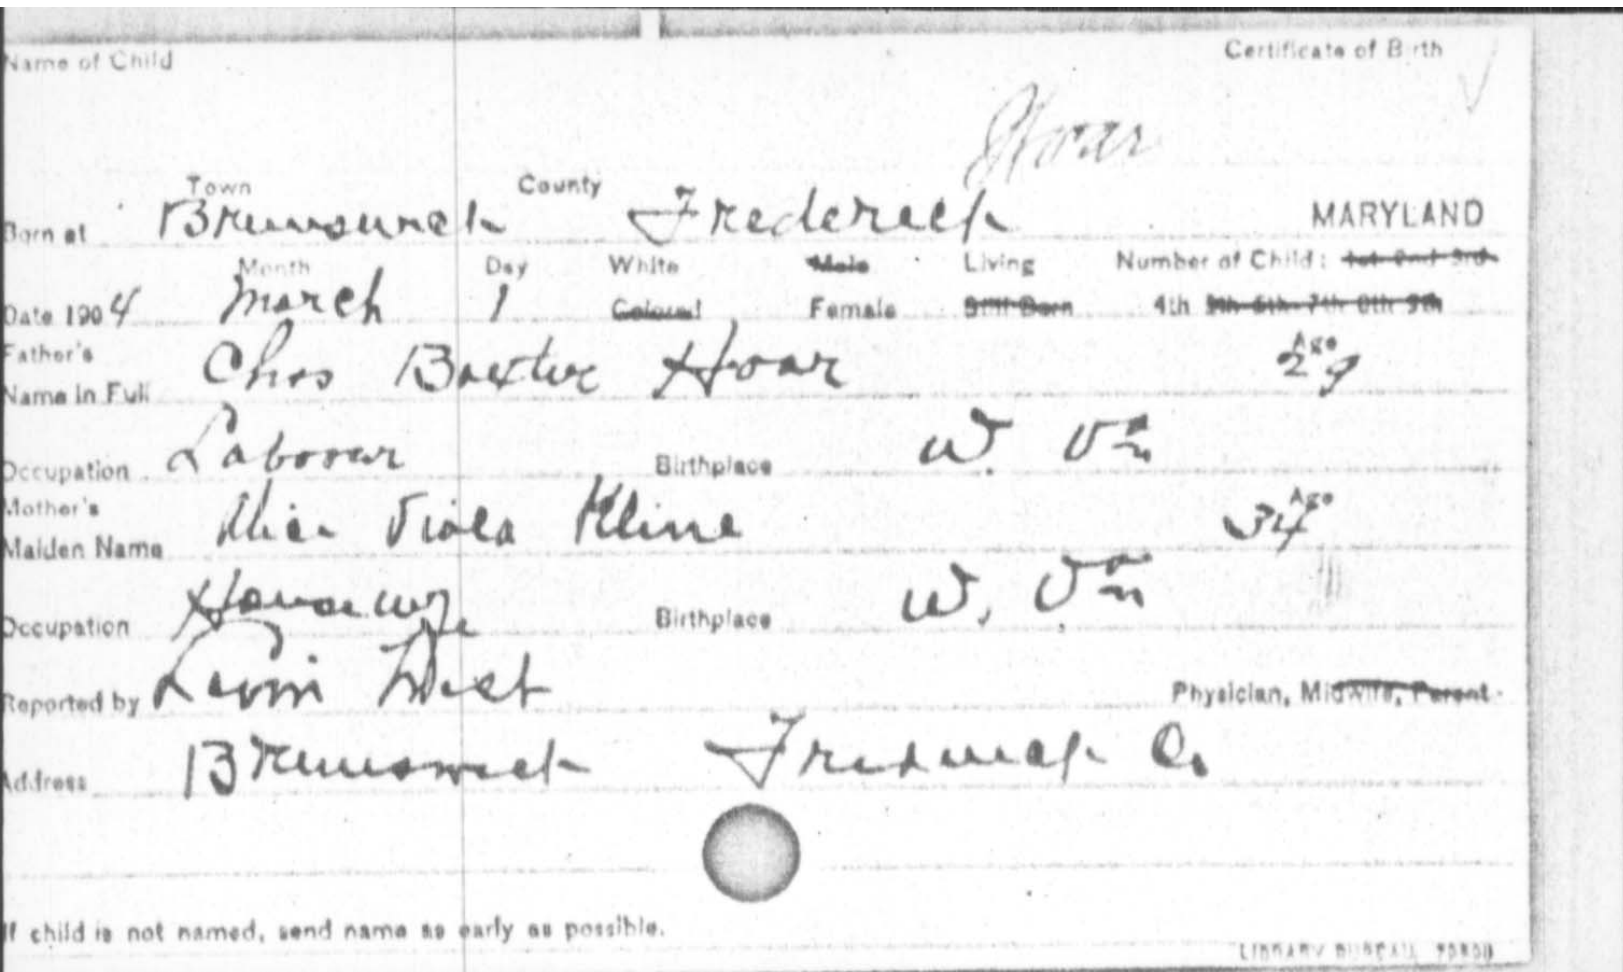 Name of Child Certificate of Birth
Hoar
Town County
Born at Brunswick Frederick MARYLAND
Month Day White Male Living Number of Child: 1st 2nd 3rd
Date 1904 March 1 Colored Female Still Born 4th 5th 6th 7th 8th 9th
Father's Age
Name in Full Chas Baxter Hoar 29
Occupation Laborer Birthplace W. Va
Mother's Age
Maiden Name Alice Viola Kline 34
Occupation Housewife Birthplace W. Va
Reported by Levin West Physician, Midwife, Parent
Address Brunswick Frederick Co
If child is not named, send name as early as possible.
LIBRARY BUREAU